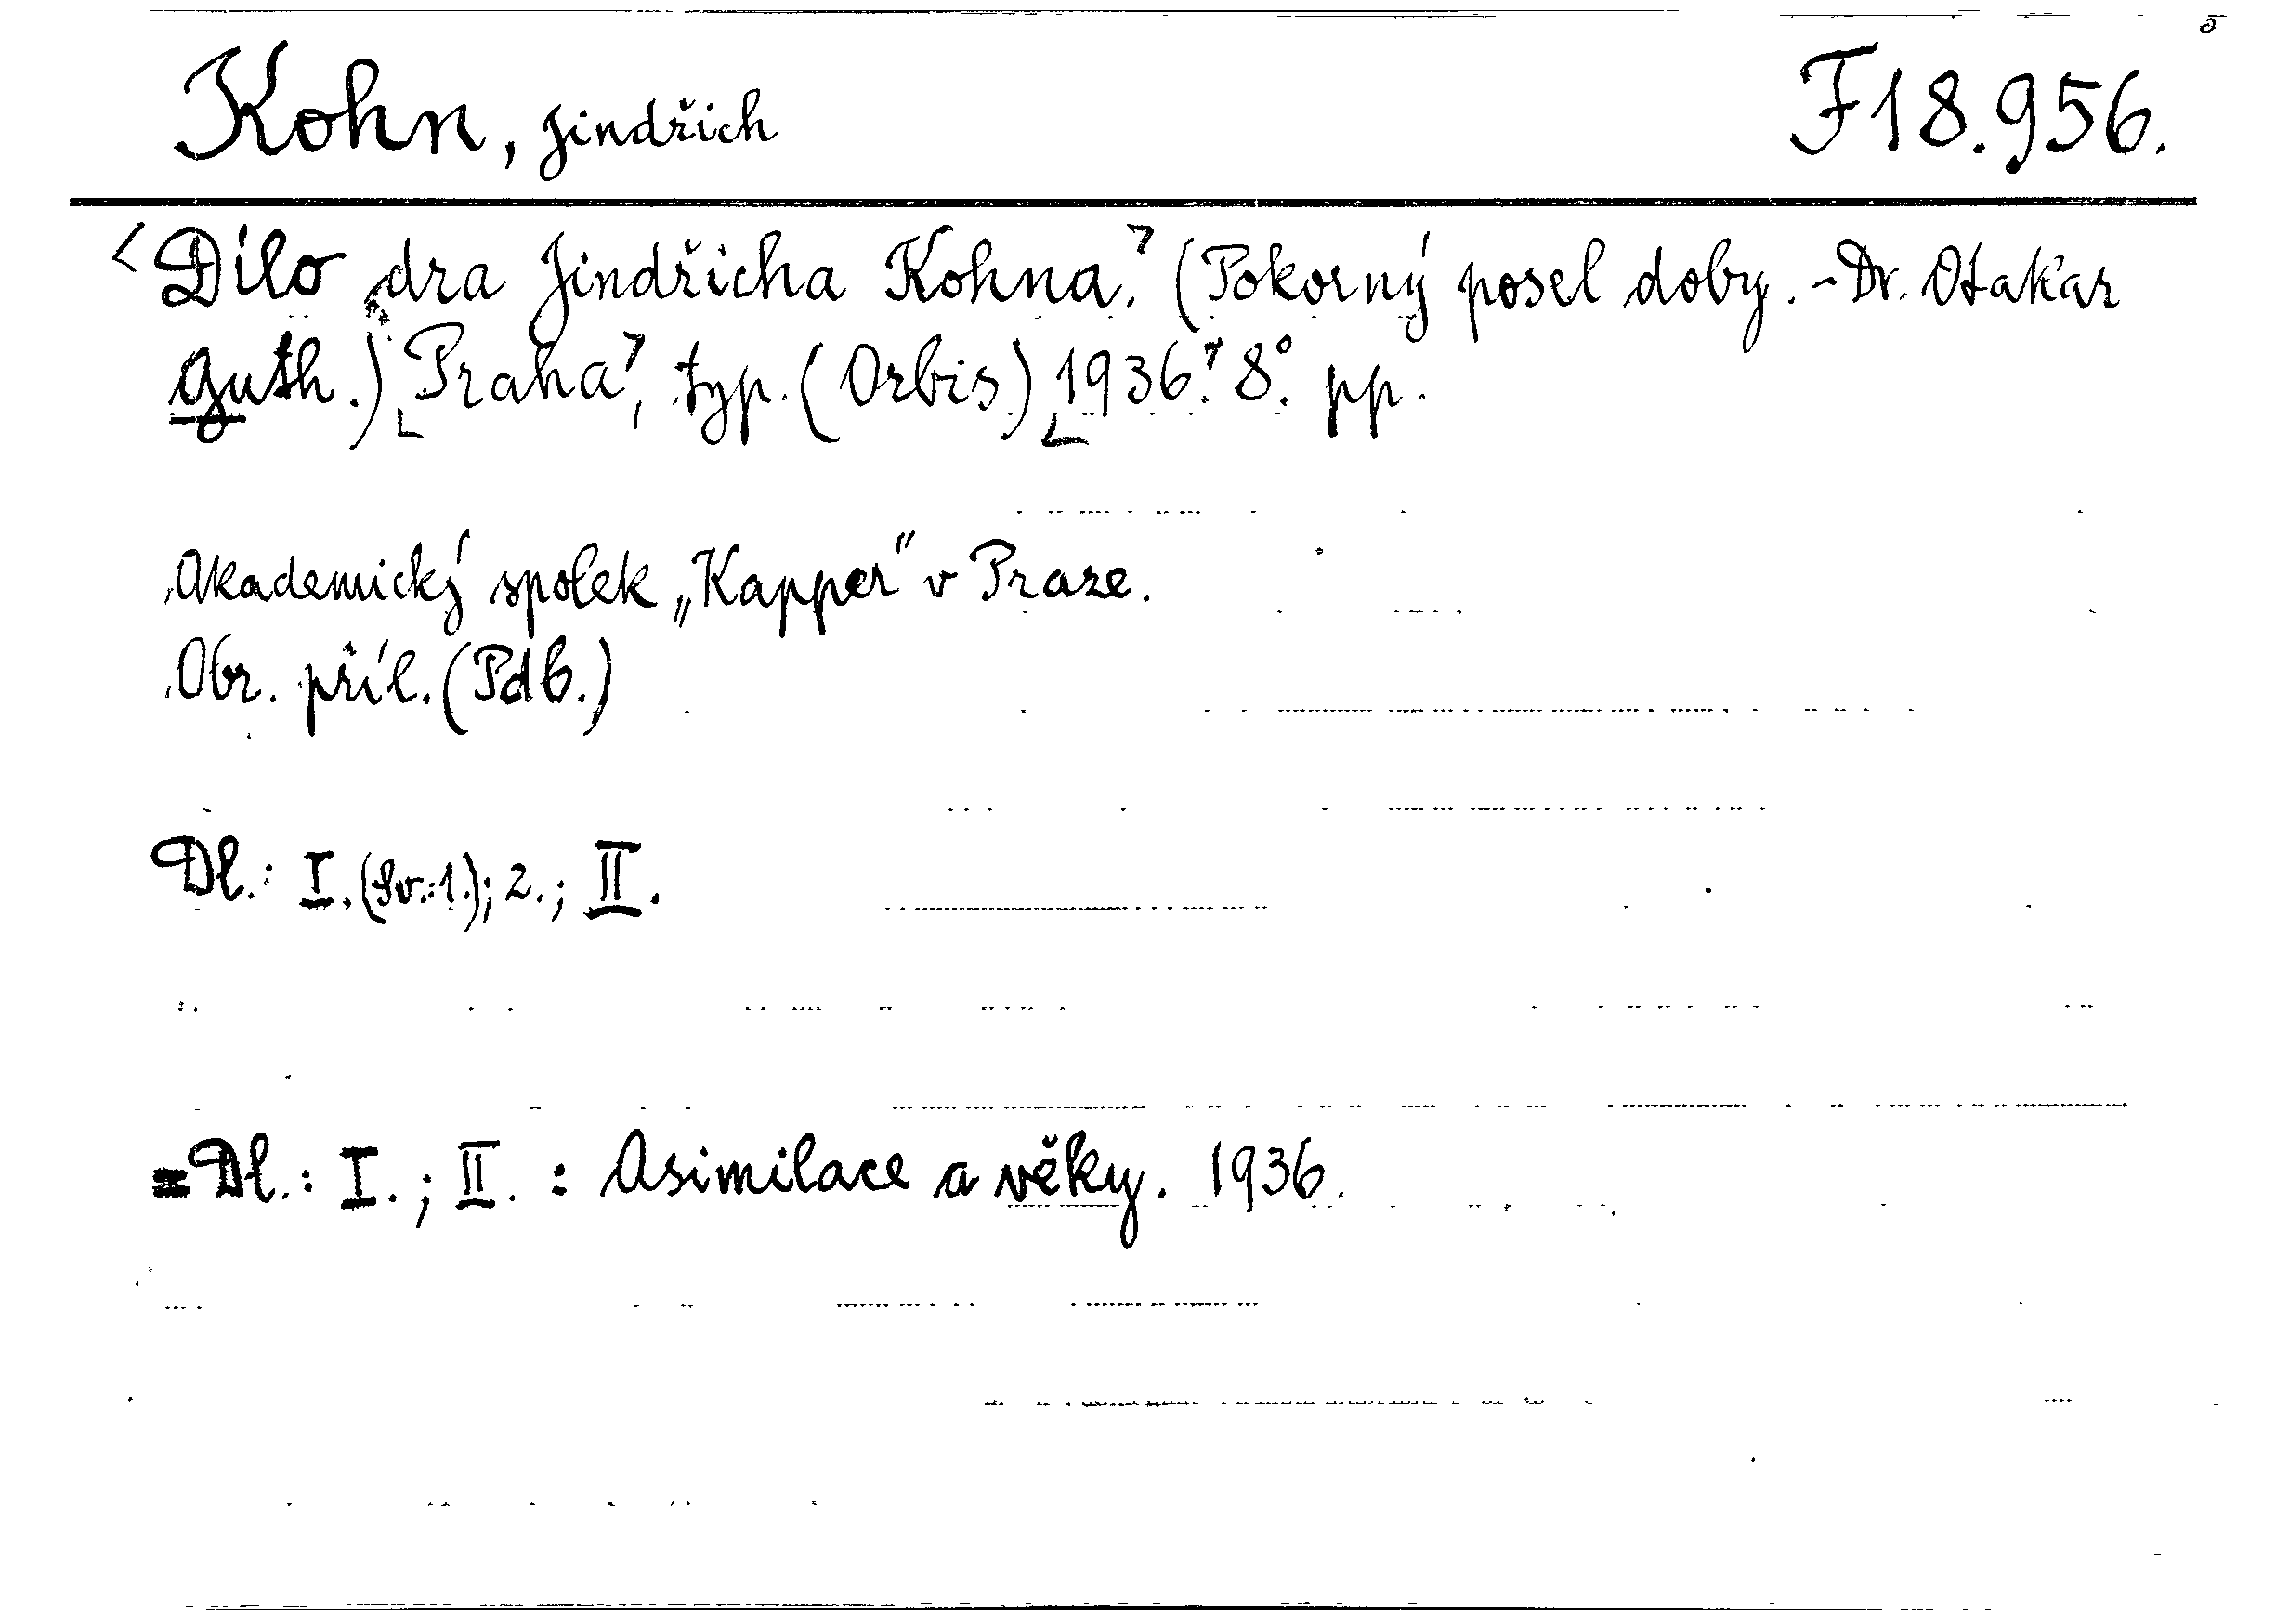 Kohn, Jindřich F18.956.
<Dílo dra Jindřicha Kohna.> (Pokorný posel doby. - Dr. Otakar
Guth.) Praha, typ. (Orbis) 1936. 8°. pp.
Akademický spolek „Kapper" v Praze.
Obr. příl. (Pdb.)
Dl.: I. (Sv.: 1.); 2.; II.
=Dl.: I.; II. : Asimilace a věky. 1936.